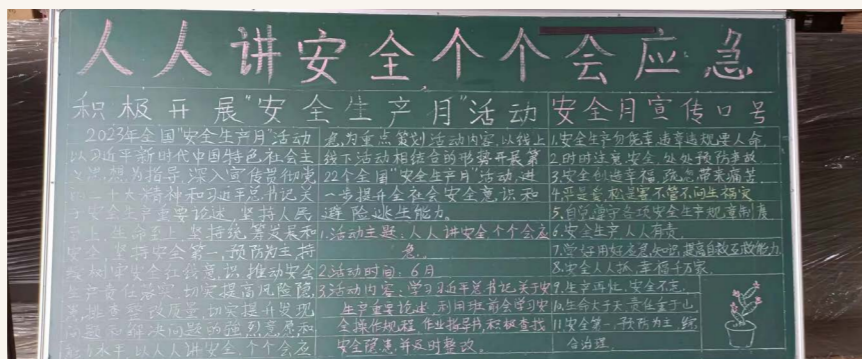 人人讲安全个个会应急
积极开展"安全生产月"活动
2023年全国"安全生产月"活动
以习近平新时代中国特色社会主
义思想为指导,深入宣传贯彻党
的二十大精神和习近平总书记关
于安全生产重要论述,坚持人民
至上,生命至上,坚持统筹发展和
安全,坚持安全第一,预防为主,持
续树牢安全红线意识,推动安全
生产责任落实,切实提高风险隐
患排查整改质量,切实提升发现
问题和解决问题的强烈意愿和
能力水平,以人人讲安全,个个会应
急,为重点策划活动内容,以线上
线下活动相结合的形势开展第
22个全国"安全生产月"活动,进
一步提升全社会安全意识和
避险逃生能力。
1.活动主题:人人讲安全个个会应
急.
2活动时间:6月
3活动内容:学习习近平总书记关于安
生产重要论述,利用班前会学习安
全操作规程,作业指导书,积极查找
安全隐患,并及时整改。
安全月宣传口号
1.安全生产勿侥幸,违章违规要人命.
2时时注意安全,处处预防事故
3安全创造幸福,疏忽带来痛苦
4.严是爱,松是害,不管不问生祸灾
5.自觉遵守各项安全生产规章制度
6.安全生产人人有责.
7.学好用好应急知识,提高自救互救能力
8.安全人人抓,幸福千万家.
9.生产再忙,安全不忘.
10.生命大于天,责任重于山
11安全第一,预防为主,综
合治理.